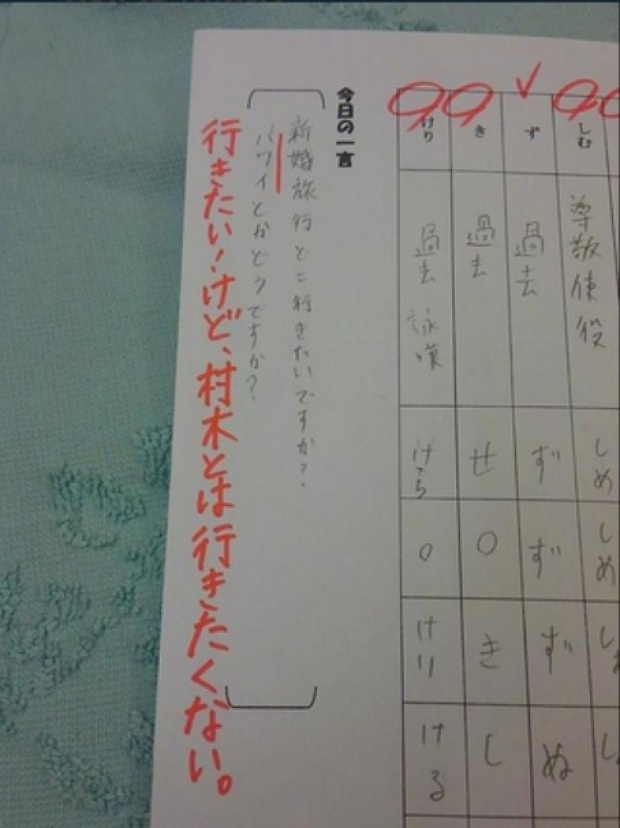 しむ
尊敬 使役
しめ
しめ
ず
過去
ず
ず
ず
ぬ
き
過去
せ
○
き
し
けり
過去 詠嘆
けら
○
けり
ける
今日の一言
新婚旅行どこ行きたいですか?
ハワイとかどうですか?
行きたい!けど、村木とは行きたくない。